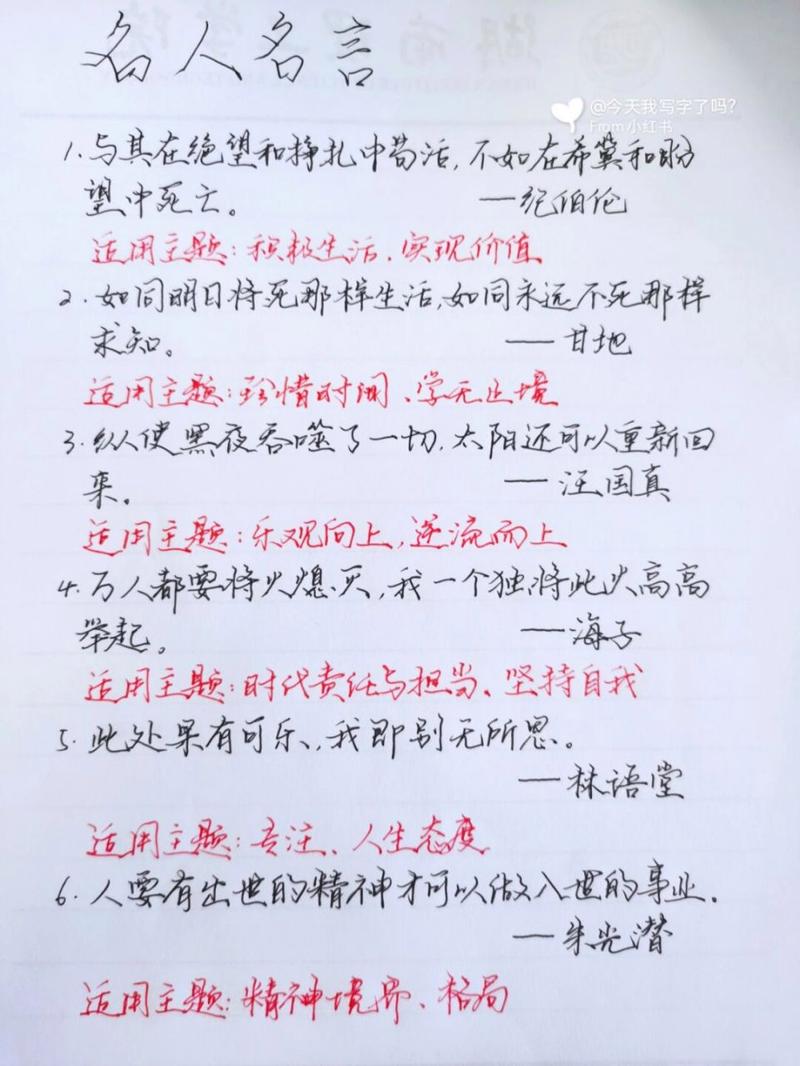 名人名言
@今天我写字了吗?
From 小红书
1.与其在绝望和挣扎中苟活,不如在希冀和盼
望中死亡。 —纪伯伦
适用主题:积极生活、实现价值
2.如同明日将死那样生活,如同永远不死那样
求知。 —甘地
适用主题:珍惜时间、学无止境
3.纵使黑夜吞噬了一切,太阳还可以重新回
来。 —汪国真
适用主题:乐观向上,逆流而上
4.万人都要将火熄灭,我一个独将此火高高
举起。 —海子
适用主题:时代责任与担当、坚持自我
5.此处果有可乐,我即别无所思。
—林语堂
适用主题:专注、人生态度
6.人要有出世的精神才可以做入世的事业.
—朱光潜
适用主题:精神境界、格局